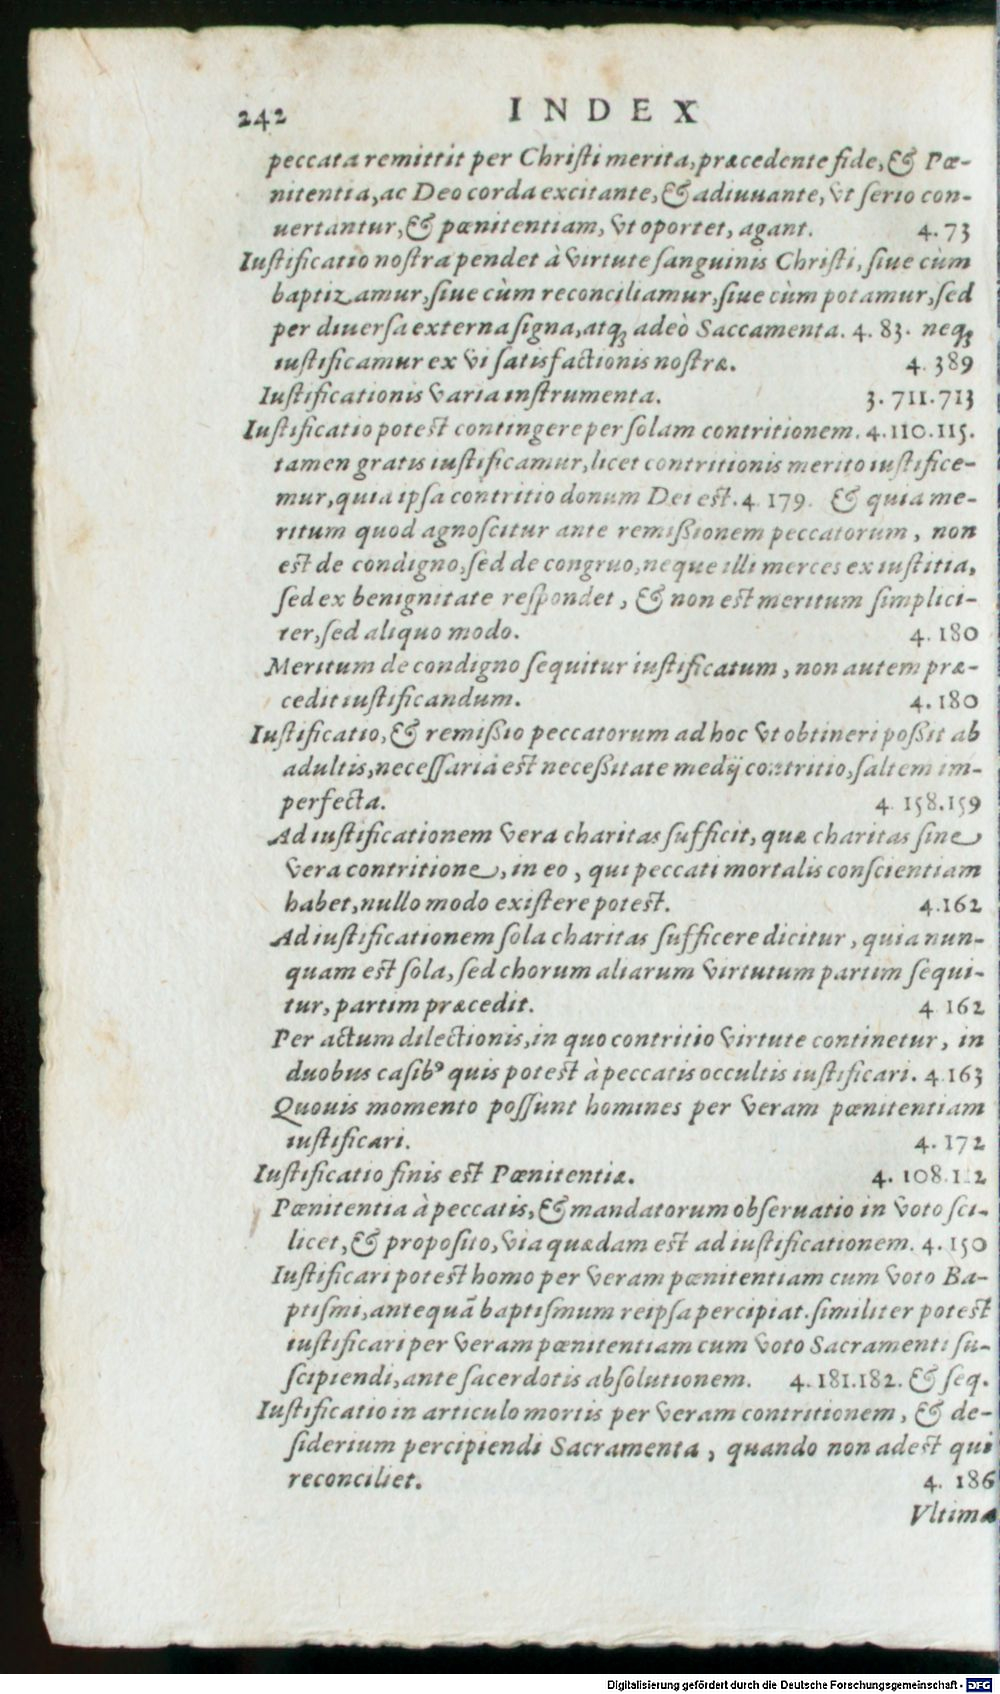 242 INDEX
peccata remittit per Christi merita, præcedente fide, & Pœ-
nitentia, ac Deo corda excitante, & adiuuante, vt serio con-
uertantur, & pœnitentiam, vt oportet, agant. 4.73
Iustificatio nostra pendet à virtute sanguinis Christi, siue cum
baptizamur, siue cùm reconciliamur, siue cùm potamur, sed
per diuersa externa signa, atq; adeò Saccamenta. 4. 83. neq;
iustificamur ex vi satisfactionis nostræ. 4. 389
Iustificationis varia instrumenta. 3. 711.713
Iustificatio potest contingere per solam contritionem. 4.110.115.
tamen gratis iustificamur, licet contritionis merito iustifice-
mur, quia ipsa contritio donum Dei est. 4. 179. & quia me-
ritum quod agnoscitur ante remißionem peccatorum, non
est de condigno, sed de congruo, neque illi merces ex iustitia,
sed ex benignitate respondet, & non est meritum simplici-
ter, sed aliquo modo. 4. 180
Meritum de condigno sequitur iustificatum, non autem præ-
cedit iustificandum. 4. 180
Iustificatio, & remißio peccatorum ad hoc vt obtineri poßit ab
adultis, necessaria est neceßitate medij contritio, saltem im-
perfecta. 4. 158.159
Ad iustificationem vera charitas sufficit, quæ charitas sine
vera contritione, in eo, qui peccati mortalis conscientiam
habet, nullo modo existere potest. 4.162
Ad iustificationem sola charitas sufficere dicitur, quia nun-
quam est sola, sed chorum aliarum virtutum partim sequi-
tur, partim præcedit. 4 162
Per actum dilectionis, in quo contritio virtute continetur, in
duobus casibꝰ quis potest à peccatis occultis iustificari. 4.163
Quouis momento possunt homines per veram pœnitentiam
iustificari. 4. 172
Iustificatio finis est Pœnitentiæ. 4. 108.112
Pœnitentia à peccatis, & mandatorum obseruatio in voto sci-
licet, & proposito, via quædam est ad iustificationem. 4. 150
Iustificari potest homo per veram pœnitentiam cum voto Ba-
ptismi, antequā baptismum reipsa percipiat. similiter potest
iustificari per veram pœnitentiam cum voto Sacramenti su-
scipiendi, ante sacerdotis absolutionem. 4. 181.182. & seq.
Iustificatio in articulo mortis per veram contritionem, & de-
siderium percipiendi Sacramenta, quando non adest qui
reconciliet. 4. 186
Vltima
Digitalisierung gefördert durch die Deutsche Forschungsgemeinschaft - DFG